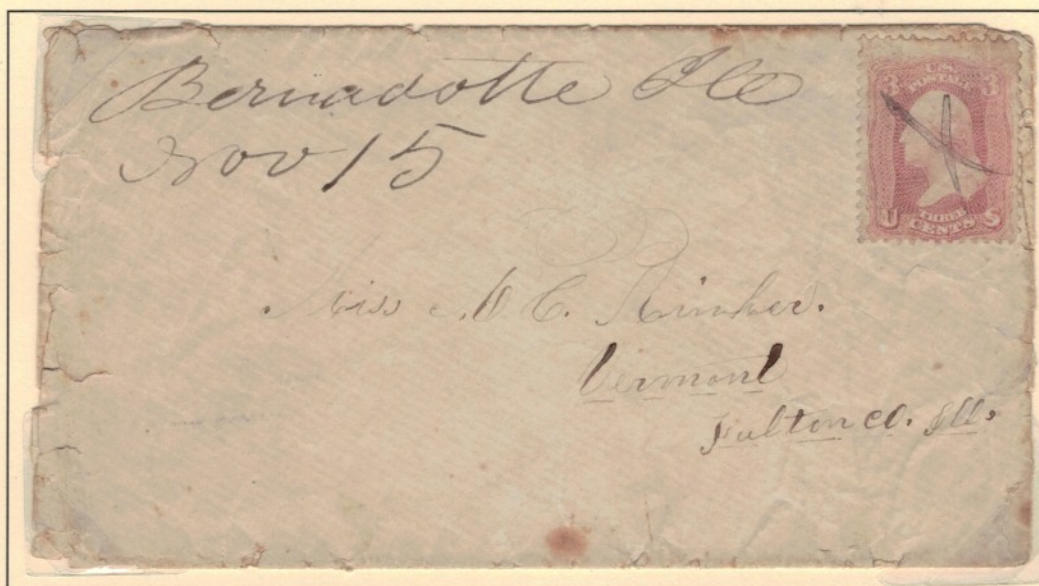 Bernadotte Ill
Nov 15
3 U.S. POSTAGE 3
U THREE CENTS S
Miss M C. Rinker.
Vermont
Fulton Co. Ill.